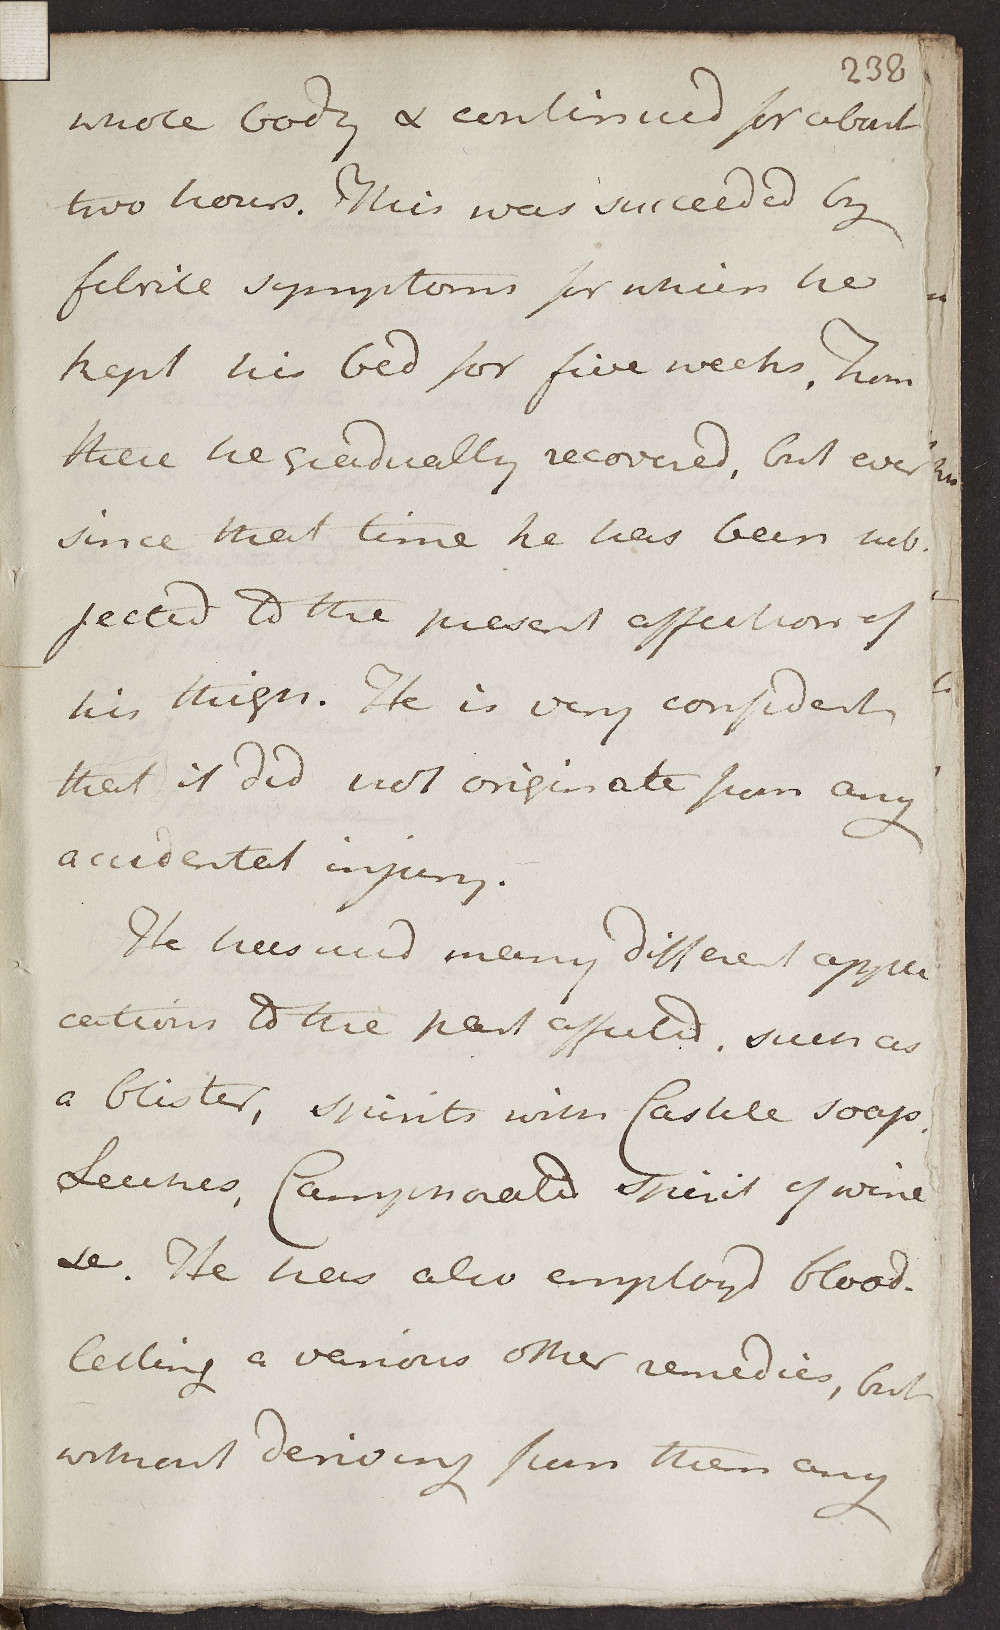 238
whole body & continued for about
two hours. This was succeeded by
febrile symptoms for which he
kept his bed for five weeks, From
these he gradually recovered, but ever
since that time he has been sub-
jected to the present affection of
his thigh. He is very confident
that it did not originate from any
accidental injury.
He has used many different appli
cations to the part affected, such as
a blister, spirits with Castile soap,
Leeches, Camphorated spirit of wine
&c. He has also employd blood-
letting & various other remedies, but
without deriving from them any